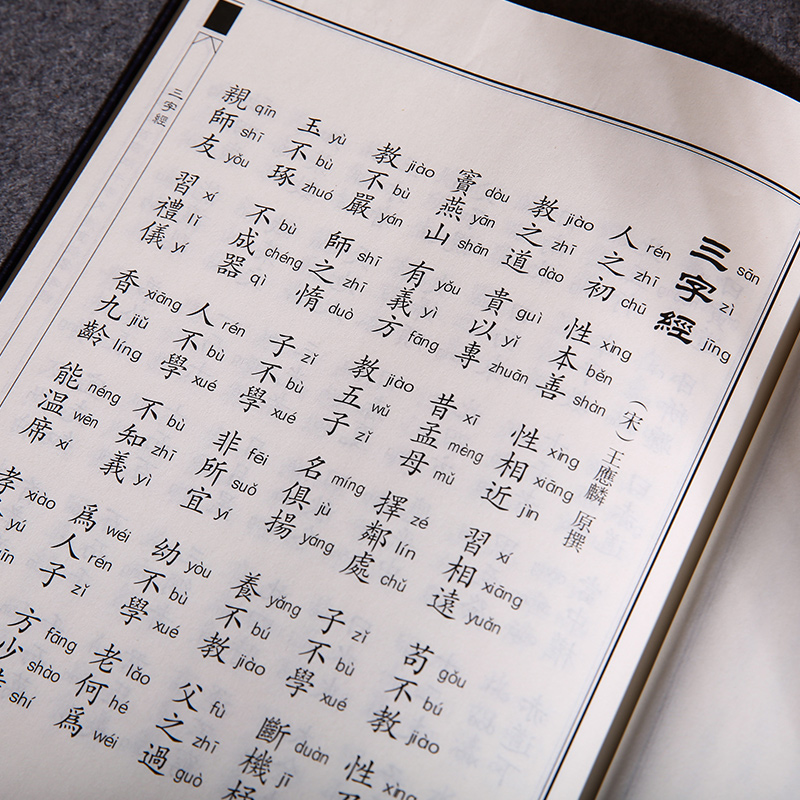 三 sān 字 zì 經 jīng
（宋）王應麟 原撰
人 rén 之 zhī 初 chū 性 xìng 本 běn 善 shàn 性 xìng 相 xiāng 近 jìn 習 xí 相 xiāng 遠 yuǎn 苟 gǒu 不 bú 教 jiào 性 xìng
教 jiào 之 zhī 道 dào 貴 guì 以 yǐ 專 zhuān 昔 xī 孟 mèng 母 mǔ 擇 zé 鄰 lín 處 chǔ 子 zǐ 不 bù 學 xué 斷 duàn 機 jī 杼
竇 dòu 燕 yān 山 shān 有 yǒu 義 yì 方 fāng 教 jiào 五 wǔ 子 zǐ 名 míng 俱 jù 揚 yáng 養 yǎng 不 bú 教 jiào 父 fù 之 zhī 過 guò
教 jiào 不 bù 嚴 yán 師 shī 之 zhī 惰 duò 子 zǐ 不 bù 學 xué 非 fēi 所 suǒ 宜 yí 幼 yòu 不 bù 學 xué 老 lǎo 何 hé 爲 wéi
玉 yù 不 bù 琢 zhuó 不 bù 成 chéng 器 qì 人 rén 不 bù 學 xué 不 bù 知 zhī 義 yì 爲 wéi 人 rén 子 zǐ 方 fāng 少 shào shí
親 qīn 師 shī 友 yǒu 習 xí 禮 lǐ 儀 yí 香 xiāng 九 jiǔ 齡 líng 能 néng 溫 wēn 席 xí 孝 xiào yú
三字經